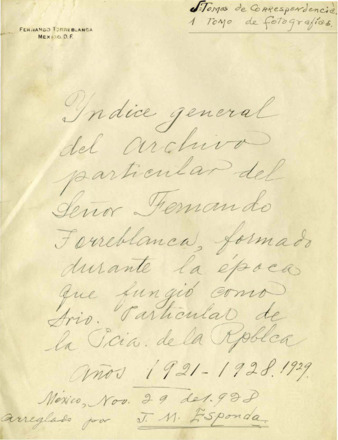 FERNANDO TORREBLANCA
MEXICO, D.F.
5 Tomos de Correspondencia.
1 Tomo de fotografías.
Indice general
del archivo
particular del
Señor Fernando
Torreblanca, formado
durante la época
que fungió como
Srio. Particular de
la Pcia. de la Rpblca
Años 1921-1928.1929.
México, Nov. 29 de 1938
arreglado por J. M. Esponda